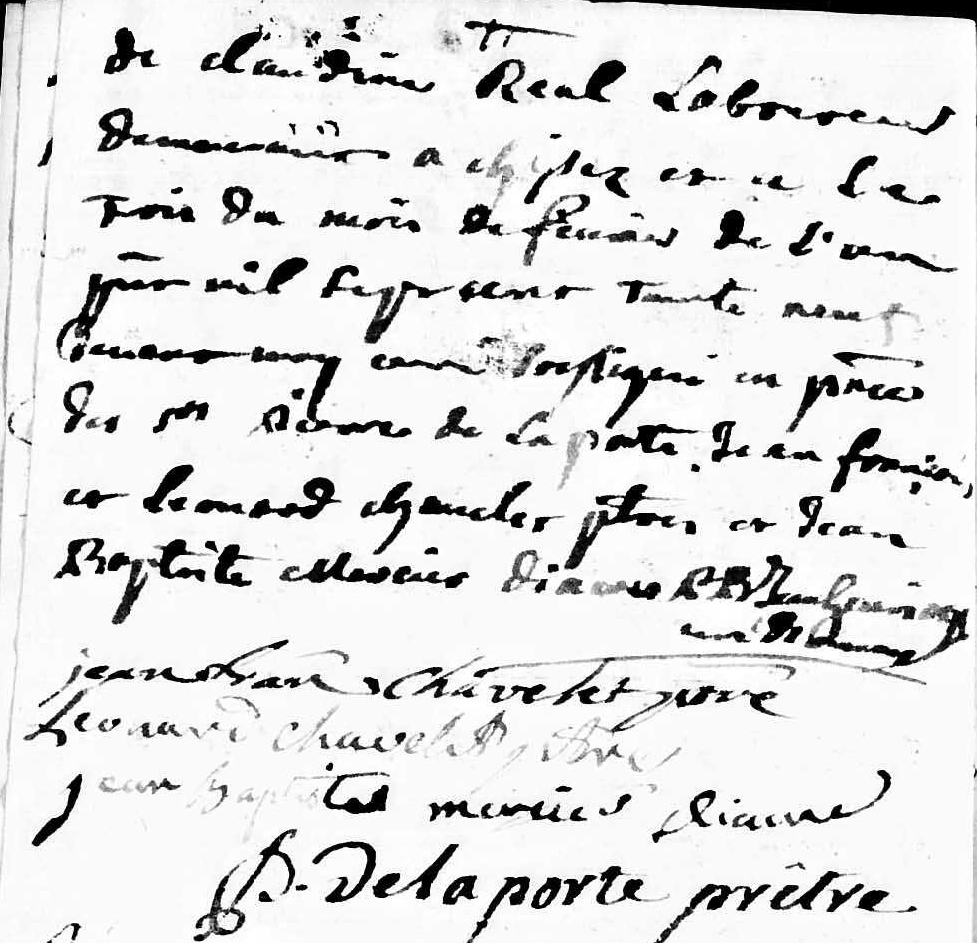 de claudine Real Laboureur
demeurant a chissez et ce le
trois du mois de fevrier de l'an
pnt mil sept cent trente neuf
devant moy curé soussigné en pnce
des srs Pierre de La porte, Jean françois,
et leonard chavelet ptres et Jean
Baptiste Mercier diacre
curé
jean fran chavelet ptre
Leonard chavelet ptre
jean baptiste mercier diacre
P. Delaporte prêtre